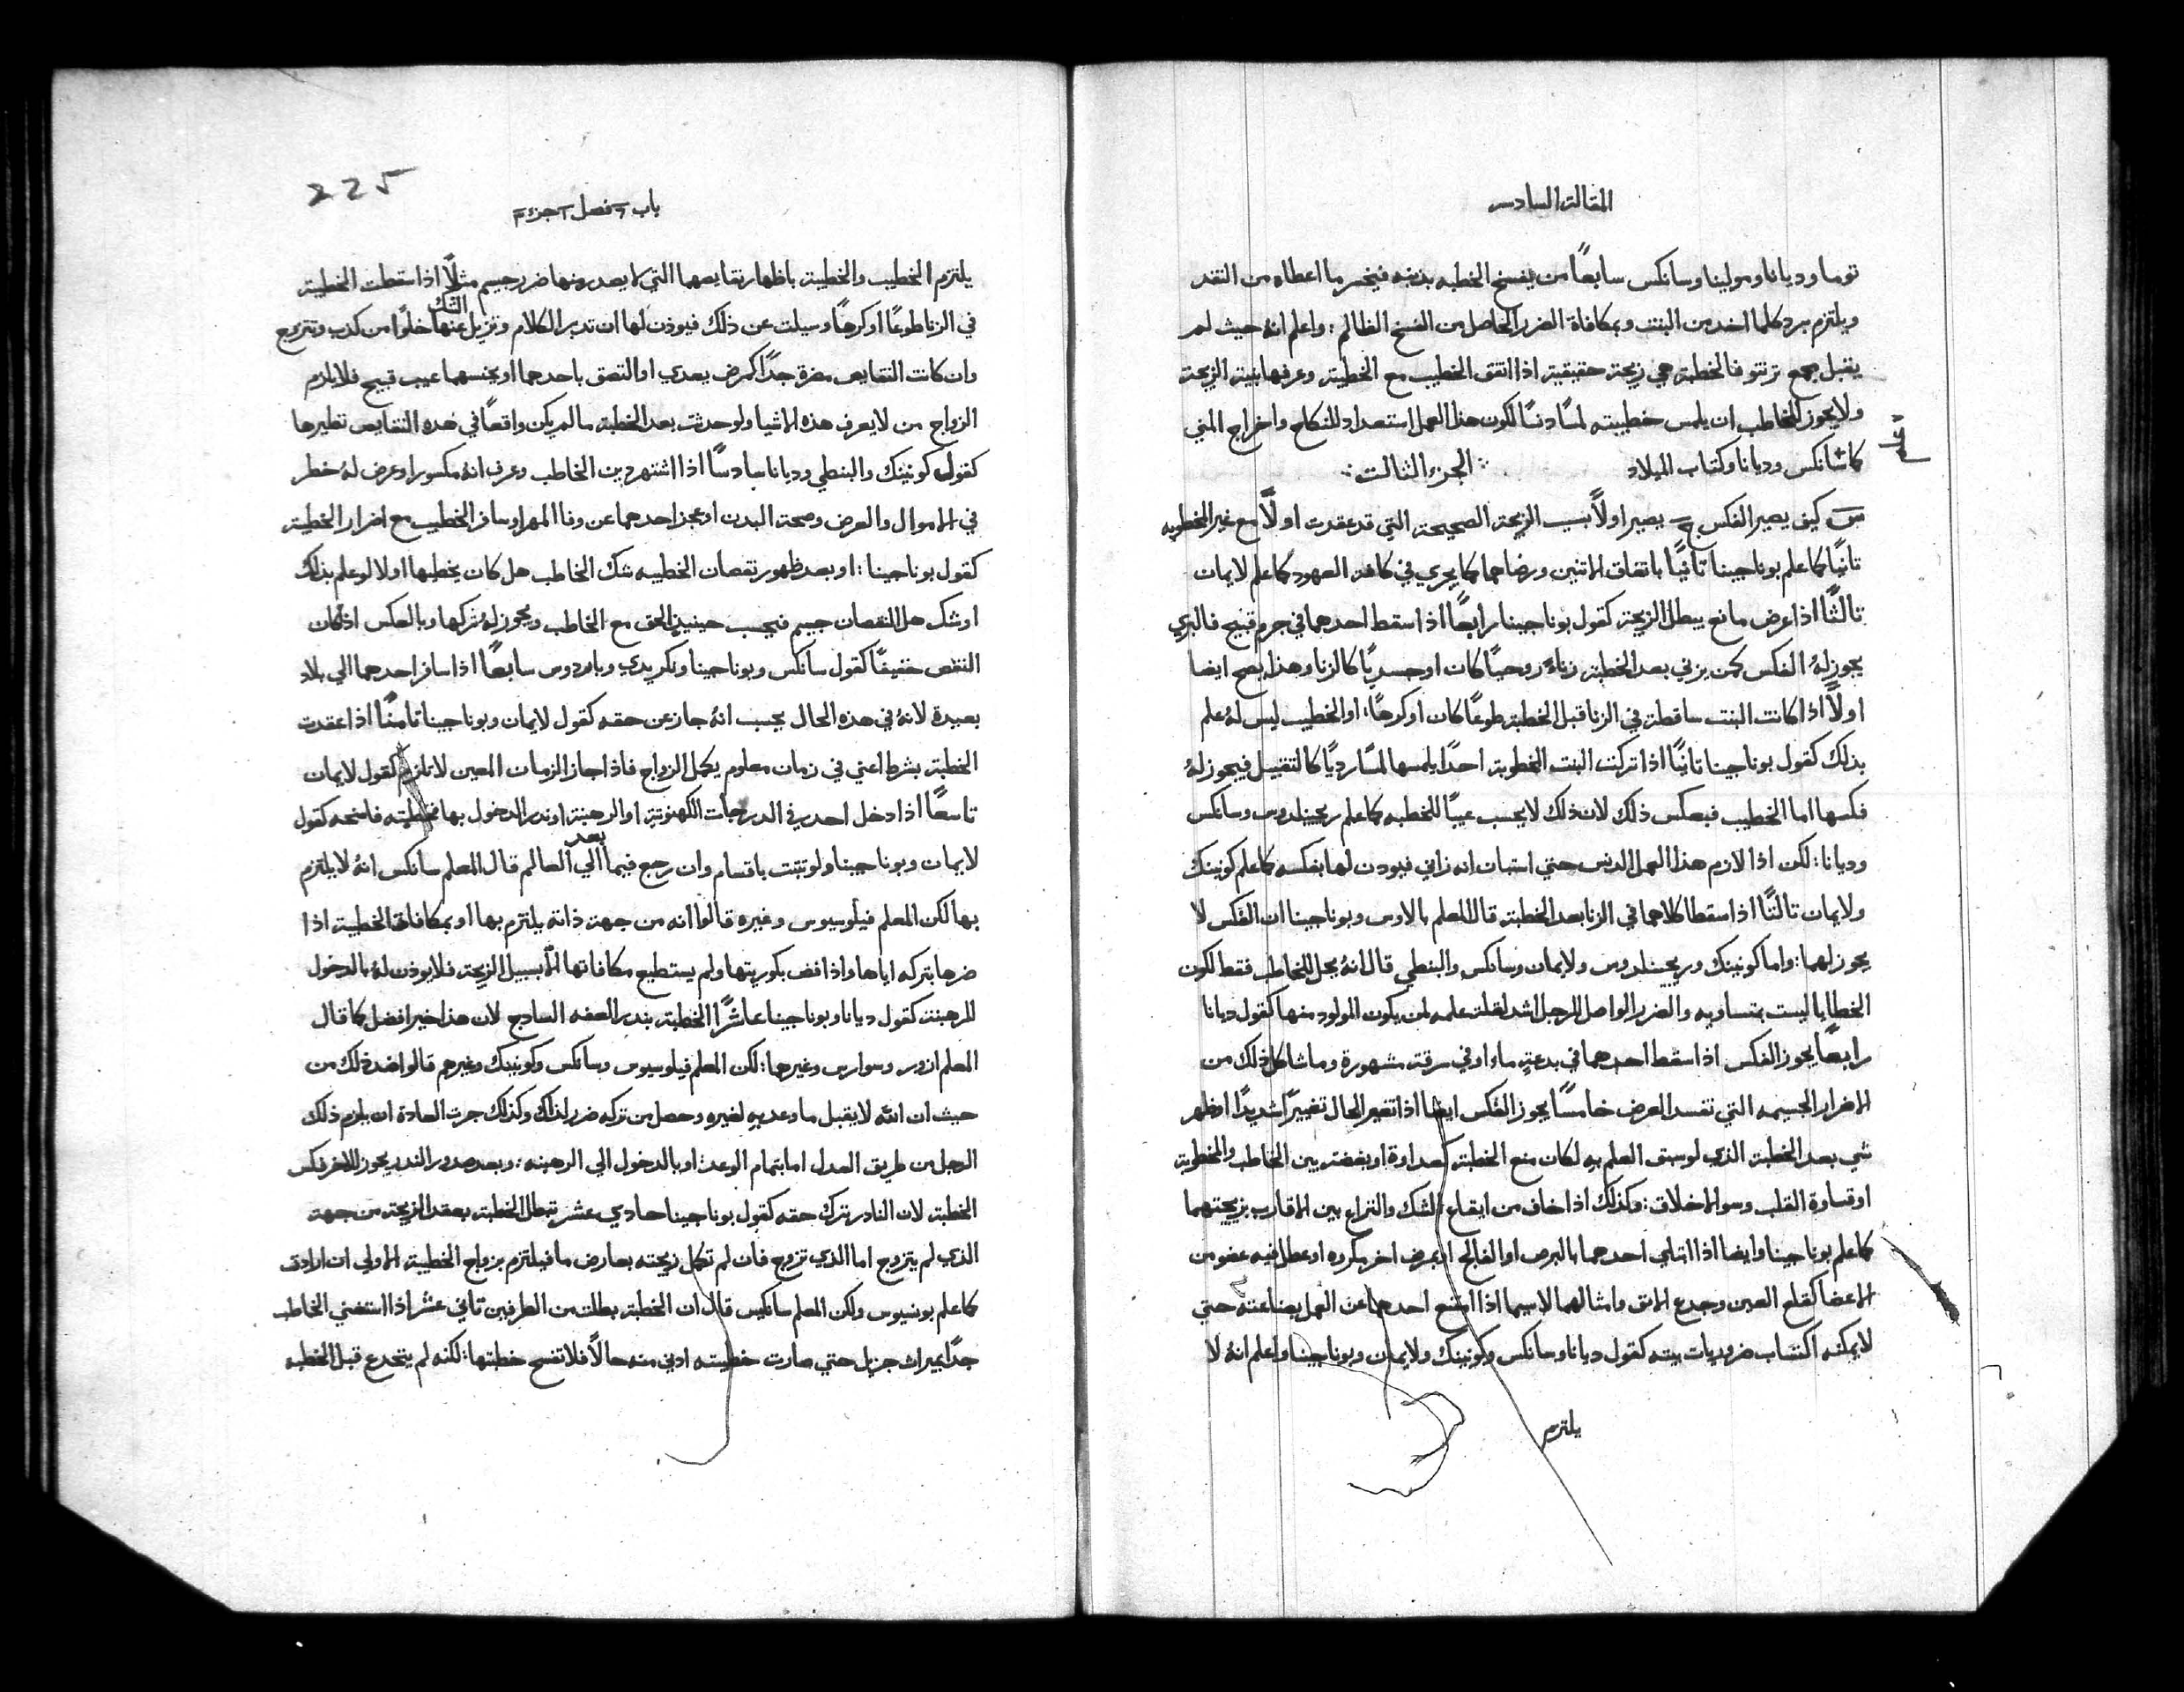 المقالة السادسه
توما وديانا ومولينا وسانكس سابعًا من يفسخ الخطبه بذنبه فيخسر ما اعطاه من النقد
ويلتزم برد كلما اخد من البنت وبمكافاة الضرر الحاصل من الفسخ الظالم: واعلم انهُ حيث لم
يقبل مجمع ترنتو فالخطبة هي زيجة حقيقية اذا اتفق الخطيب مع الخطيبة وعرفها بنية الزيجة
ولا يجوز للخاطب ان يلمس خطيبته لمسًا دنسًا لكون هذا العمل استعداد للنكاح واخراج المني
كما سانكس وديانا وكتاب الميلاد الجزء الثالت
س كيف يصير الفكس ج يصير اولاً بسبب الزيجة الصحيحة التي قد عقدت اولاً مع غير المخطوبه
تانيًا كما علم بوناجينا تانيًا باتفاق الاتنين ورضاهما كما يجري في كافة العهود كما علم لايمان
تالتًا اذا عرض مانع يبطل الزيجة كقول بوناجينا رابعًا اذا سقط احدهما في جرم قبيح فالبري
يجوز لهُ الفكس كمن يزني بعد الخطبة زناءً روحيًا كان او جسديًا كالزنا وهذا يصح ايضا
اولاً اذا كانت البنت ساقطة في الزنا قبل الخطبة طوعًا كان او كرهًا: او الخطيب ليس لهُ علم
بذلك كقول بوناجينا تانيًا اذا تركت البنت المخطوبة احدًا يلمسها لمسًا رديًا كالتقبيل فيجوز لهُ
فكسها اما الخطيب فبعكس ذلك لان ذلك لا يحسب عيبًا للخطبه كما علم ريجينلدوس وسانكس
وديانا: لكن اذا لازم هذا العمل الدنس حتي استبان انه زاني فيودن لها بفكسه كما علم كونينك
ولايمان تالتًا اذا سقطا كلاهما في الزنا بعد الخطبة قال المعلم بالاوس وبوناجينا ان الفكس لا
يجوز لهما: واما كونينك وريجينلدوس ولايمان وسانكس والبنطي قال انهُ يحل للخاطب فقط لكون
الخطايا ليست بمتساويه والضرر الواصل للرجل اشد لقلة علمه لمن يكون المولود منها كقول ديانا
رابعًا يجوز الفكس اذا سقط احدهما في بدعةٍ ما او في سرقة مشهورة وما شاكل ذلك من
الاضرار الجسيمه التي تفسد العرض خامسًا يجوز الفكس ايضا اذا تغير الحال تغييرًا شديدًا او ظهر
شي بعد الخطبة الذي لو سبق العلم بهِ لكان منع الخطبة كعداوة او بغضة بين الخاطب والمخطوبة
او قساوة القلب وسو الاخلاق: وكذلك اذا خاف من ايقاع الشك والنزاع بين الاقارب بزيجتهما
كما علم بوناجينا وايضا اذا ابتلي احدهما بالبرص او الفالج او بمرض اخر مكروه او عطل فيه عضو من
الاعضا كقلع العين وجدع الانف وامثالهما لاسيما اذا امتنع احدهما عن العمل بصناعته حتي
لا يمكنه اكتساب ضروريات بيته كقول ديانا وسانكس وكونينك ولايمان وبوناجينا واعلم انهُ لا
يلتزم
225
باب ٦ فصل ٢ جزء ٣
يلتزم الخطيب والخطيبة باظهار نقايصهما التي لا يصدر منها ضرر جسيم مثلاً اذا سقطت الخطيبة
في الزنا طوعًا او كرهًا وسيلت عن ذلك فيودن لها ان تدبر الكلام وتزيل عنها الشك خلوًا من كدب وتتزوج
وان كانت النقايص مضرة جدًا كمرض يعدي او التصق باحدهما او بجنسهما عيب قبيح فلا يلزم
الزواج من لا يعرف هذه الاشيا ولو حدثت بعد الخطبة ما لم يكن واقعًا في هذه النقايص نظيرها
كقول كونينك والبنطي وديانا سادسًا اذا اشتهر دين الخاطب وعرف انهُ مكسور او عرض لهُ خطر
في الاموال والعرض وصحة البدن او عجز احدهما عن وفا المهر او سافر الخطيب مع اضرار الخطيبة
كقول بوناجينا: او بعد ظهور نقصان الخطيبه شك الخاطب هل كان يخطبها اولا لو علم بذلك
او شك هل النقصان جسيم فيحسب حينيذٍ الحق مع الخاطب ويجوز لهُ تركها وبالعكس اذا كان
النقص خفيفًا كقول سانكس وبوناجينا سابعًا اذا سافر احدهما الي بلاد
بعيدة لانهُ في هذه الحال يحسب انهُ جاز عن حقه كقول لايمان وبوناجينا تامنًا اذا عقدت
الخطبة بشرط اعني في زمان معلوم يكمل الزواج فاذا جاز الزمان المعين لا تلزم كقول لايمان
تاسعًا اذا دخل احد في الدرجات الكهنوتية او الرهبنة او ندر الدخول بها فخطبته فاسخه كقول
لايمان وبوناجينا ولو تبتت باقسام وان رجع فيما بعد الي العالم قال المعلم سانكس انهُ لا يلتزم
بها لكن المعلم فيلوسيوس وغيره قالوا انه من جهة ذاته يلتزم بها او بمكافاة الخطيبة اذا
ضرها بتركه اياها واذا فض بكوريتها ولم يستطيع مكافاتها الا بسبيل الزيجة فلا يوذن لهُ بالدخول
للرهبنة كقول ديانا وبوناجينا عاشرًا الخطبة بندر العفه السادج لان هذا خير افضل كما قال
المعلم ازور وسوارس وغيرهما: لكن المعلم فيلوسيوس وسانكس وكونينك وغيرهم قالوا ضد ذلك من
حيث ان الله لا يقبل ما وعد بهِ لغيره وحصل من تركه ضرر لذاك وكذلك جرت العادة ان يلزم ذلك
الرجل من طريق العدل اما بتمام الوعد: او بالدخول الي الرهبنه: وبعد صدور الندر يجوز للاخر فكس
الخطبة لان النادر ترك حقه كقول بوناجينا حادي عشر تبطل الخطبة بعقد الزيجة من جهة
الذي لم يتزوج اما الذي تزوج فان لم تكمل زيجته بعارض ما فيلتزم بزواج الخطيبة الاولي ان ارادت
كما علم بونسيوس ولكن المعلم سانكيس قال ان الخطبة بطلت من الطرفين تاني عشر اذا استغني الخاطب
جدًا بميرات جزيل حتي صارت خطيبته ادني منه حالاً فلا تفسح خطبتها: لكنه لم يتخدع قبل الخطبه